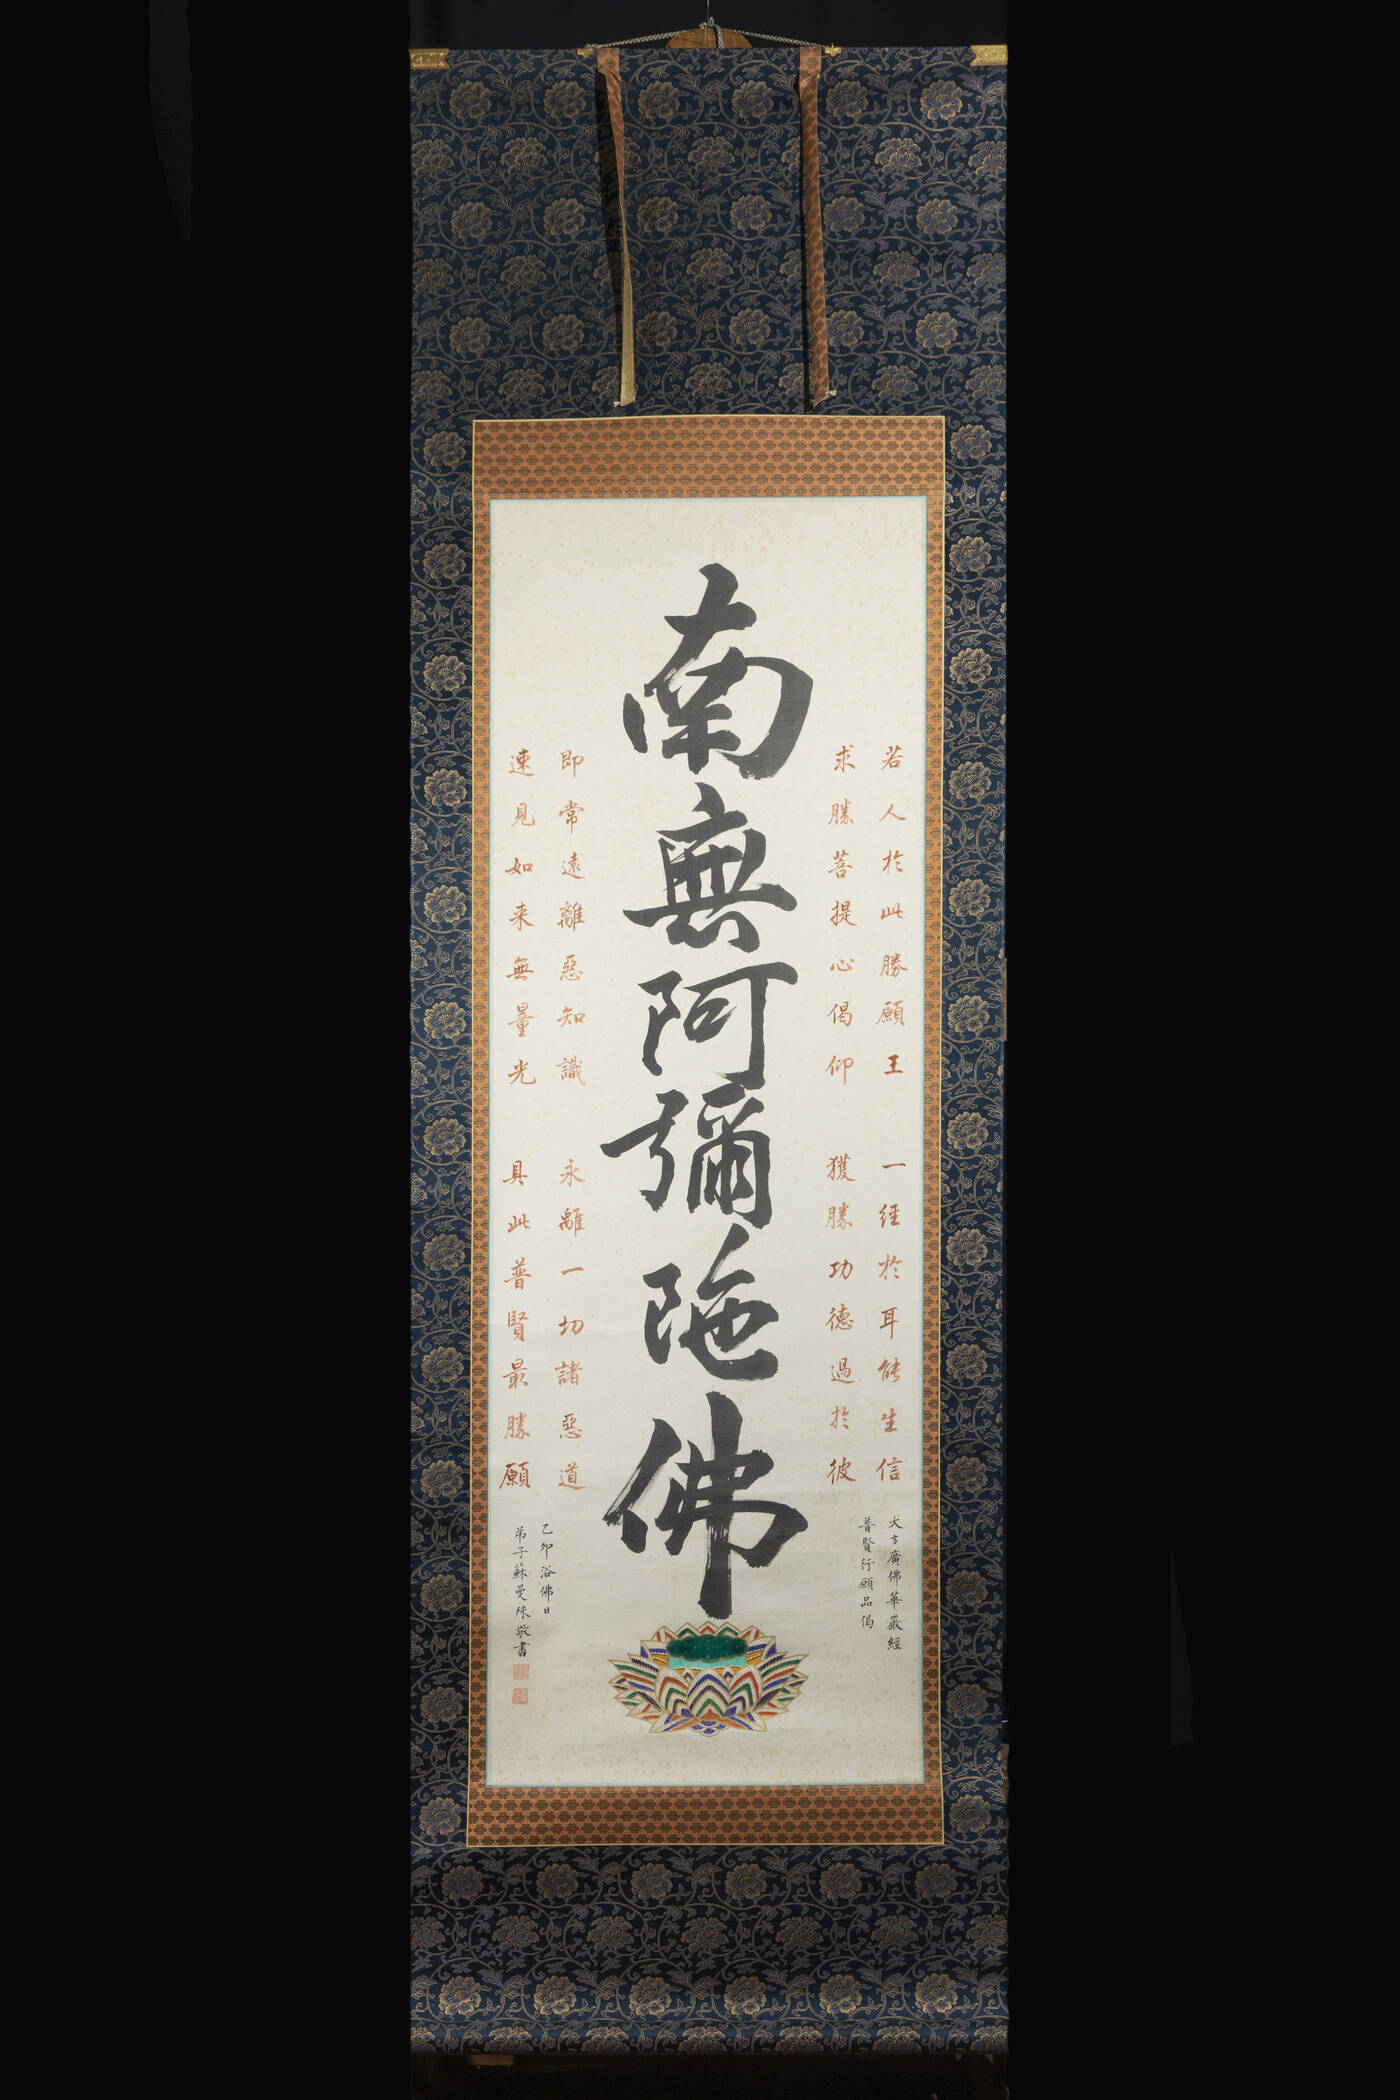 南無阿彌陀佛
若人於此勝願王 一經於耳能生信
求勝菩提心偈仰 獲勝功德過於彼
即常遠離惡知識 永離一切諸惡道
速見如来無量光 具此普賢最勝願
大方廣佛華嚴經
普賢行願品偈
乙卯浴佛日
弟子蘇曼殊敬書